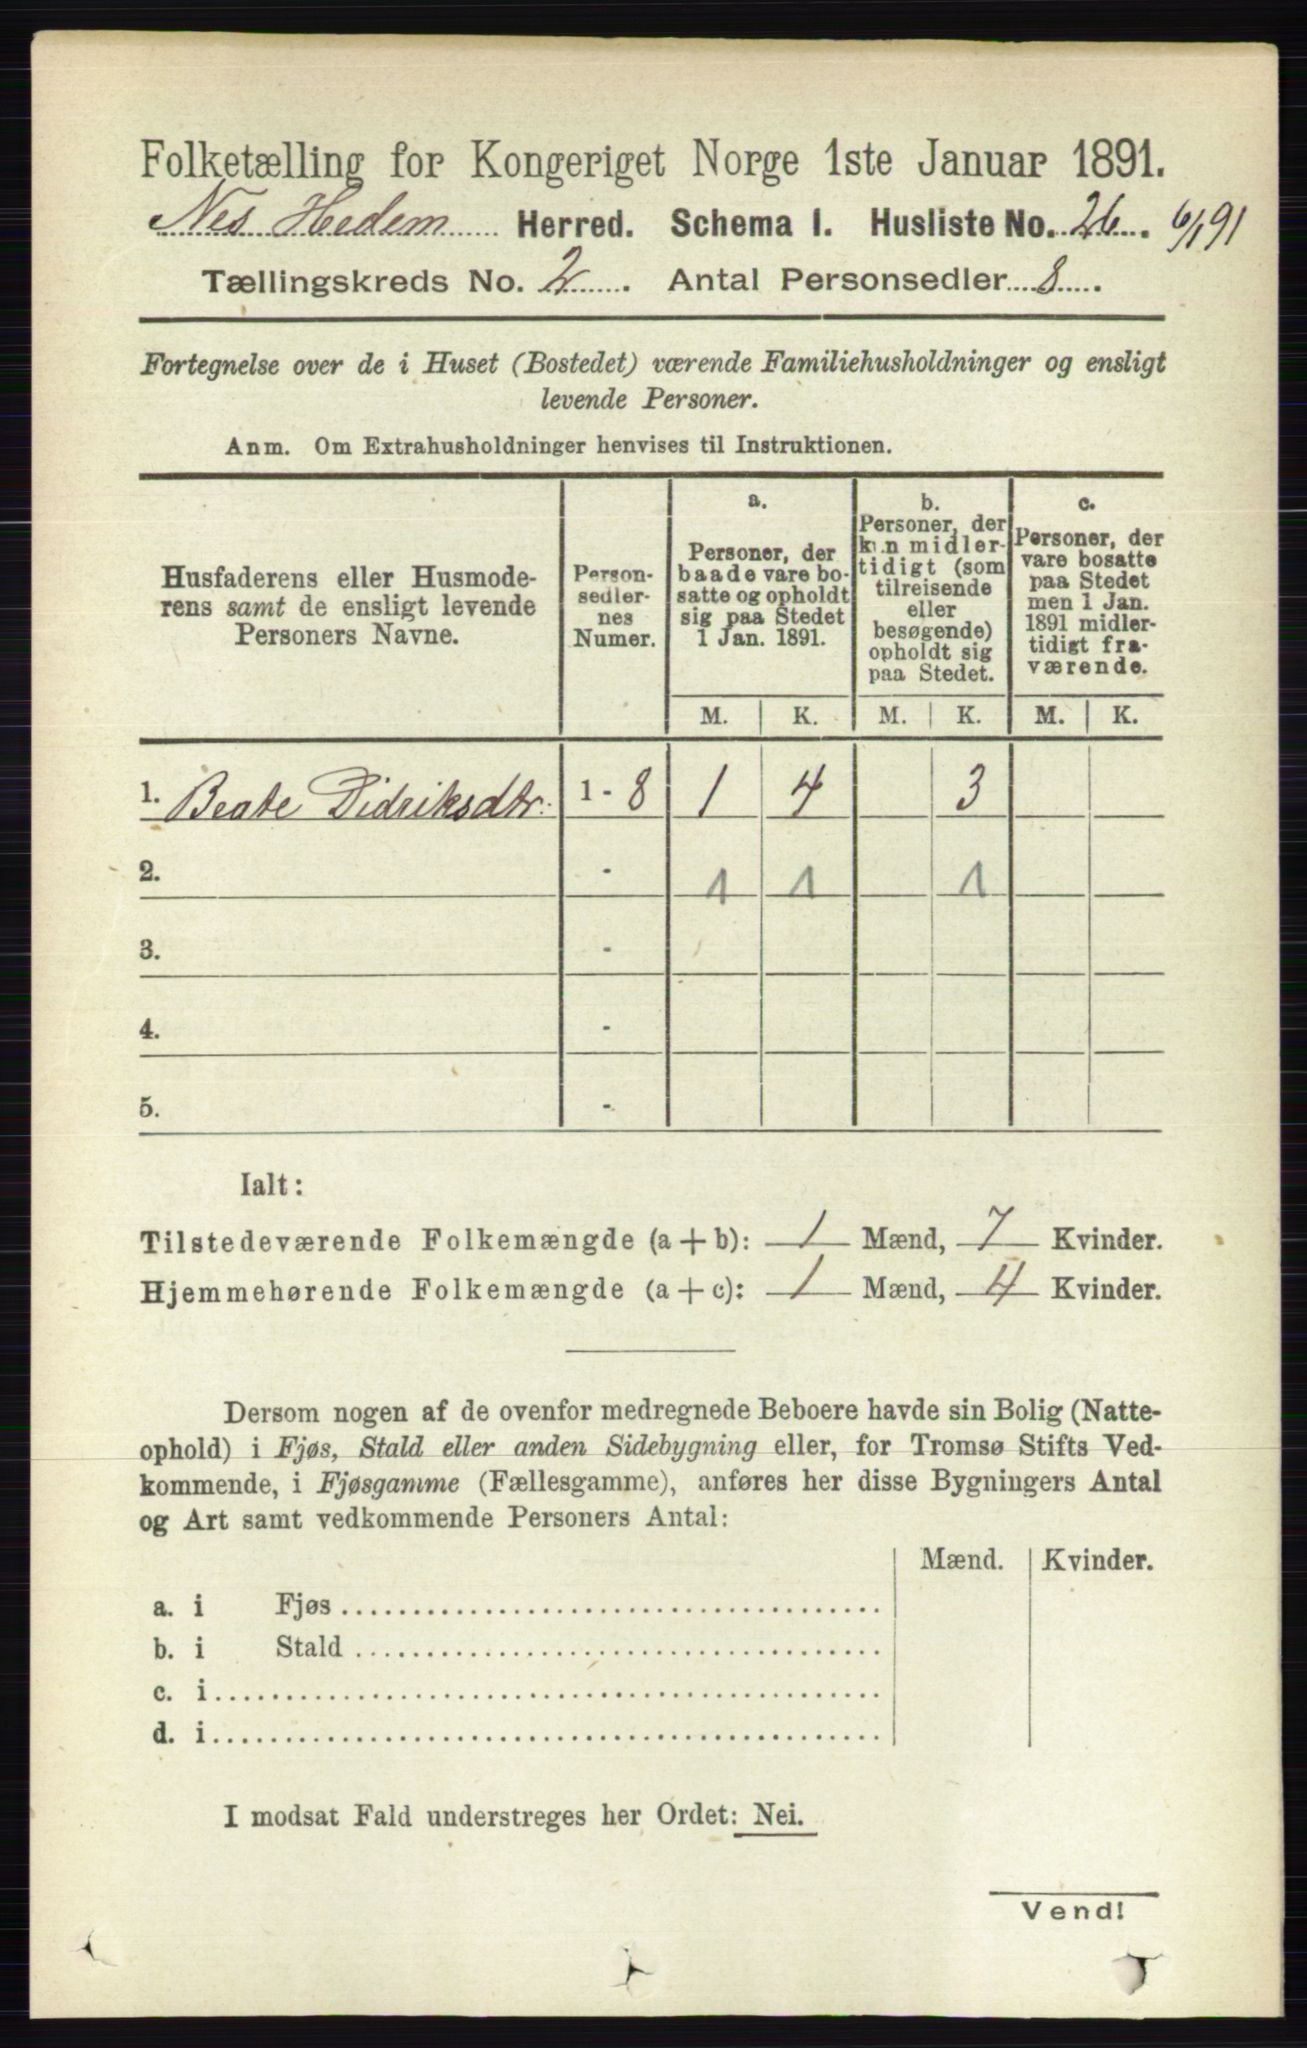 Folketælling for Kongeriget Norge 1ste Januar 1891.
Nes Hedem Herred. Schema I. Husliste No. 26. 6/1 91
Tællingskreds No. 2. Antal Personsedler 8.
Fortegnelse over de i Huset (Bostedet) værende Familiehusholdninger og ensligt
levende Personer.
Anm. Om Extrahusholdninger henvises til Instruktionen.
Husfaderens eller Husmode-
rens samt de ensligt levende
Personers Navne.
Person-
sedler-
nes
Numer.
a.
Personer, der
baade vare bo-
satte og opholdt
sig paa Stedet
1 Jan. 1891.
b.
Personer, der
kun midler-
tidigt (som
tilreisende
eller
besøgende)
opholdt sig
paa Stedet.
c.
Personer, der
vare bosatte
paa Stedet
men 1 Jan.
1891 midler-
tidigt fra-
værende.
M. K. M. K. M. K.
1. Beate Didriksdtr. 1 - 8 1 4 3
2. - 1 1 1
3. -
4. -
5. -
Ialt:
Tilstedeværende Folkemængde (a + b): 1 Mænd, 7 Kvinder.
Hjemmehørende Folkemængde (a + c): 1 Mænd, 4 Kvinder.
Dersom nogen af de ovenfor medregnede Beboere havde sin Bolig (Natte-
ophold) i Fjøs, Stald eller anden Sidebygning eller, for Tromsø Stifts Ved-
kommende, i Fjøsgamme (Fællesgamme), anføres her disse Bygningers Antal
og Art samt vedkommende Personers Antal:
Mænd. Kvinder.
a. i Fjøs
b. i Stald
c. i
d. i
I modsat Fald understreges her Ordet: Nei.
Vend!